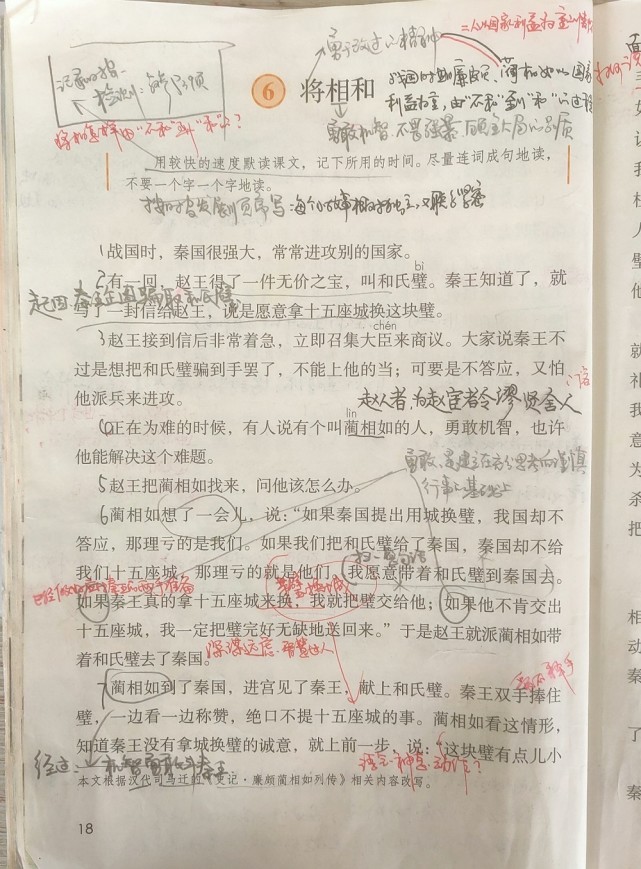 勇于改过的精神
二人以国家利益为重的情怀
6 将相和
我国时期廉颇、蔺相如以国家
利益为重，由“不和”到“和”的过程
将相怎样由“不和”到“和”？
勇敢机智、不畏强暴、顾全大局的品质
用较快的速度默读课文，记下所用的时间。尽量连词成句地读，
不要一个字一个字地读。
1战国时，秦国很强大，常常进攻别的国家。
bì
2有一回，赵王得了一件无价之宝，叫和氏璧。秦王知道了，就
起因：秦王企图骗取和氏璧
写了一封信给赵王，说是愿意拿十五座城换这块璧。
chén
3赵王接到信后非常着急，立即召集大臣来商议。大家说秦王不
过是想把和氏璧骗到手罢了，不能上他的当；可要是不答应，又怕
门客
他派兵来进攻。
赵人者，为赵宦者令缪贤舍人
lìn
4正在为难的时候，有人说有个叫蔺相如的人，勇敢机智，也许
他能解决这个难题。
勇敢、是建立在充分思考而谨慎
行事的基础上
5赵王把蔺相如找来，问他该怎么办。
6蔺相如想了一会儿，说：“如果秦国提出用城换璧，我国却不
答应，那理亏的是我们。如果我们把和氏璧给了秦国，秦国却不给
我们十五座城，那理亏的就是他们。我愿意带着和氏璧到秦国去。
如果秦王真的拿十五座城来换，我就把璧交给他；如果他不肯交出
十五座城，我一定把璧完好无缺地送回来。”于是赵王就派蔺相如带
着和氏璧去了秦国。
深谋远虑、智慧过人
7蔺相如到了秦国，进宫见了秦王，献上和氏璧。秦王双手捧住
璧，一边看一边称赞，绝口不提十五座城的事。蔺相如看这情形，
知道秦王没有拿城换璧的诚意，就上前一步，说：“这块璧有点儿小
经过：
语言、神态、动作？
本文根据汉代司马迁的《史记·廉颇蔺相如列传》相关内容改写。
18